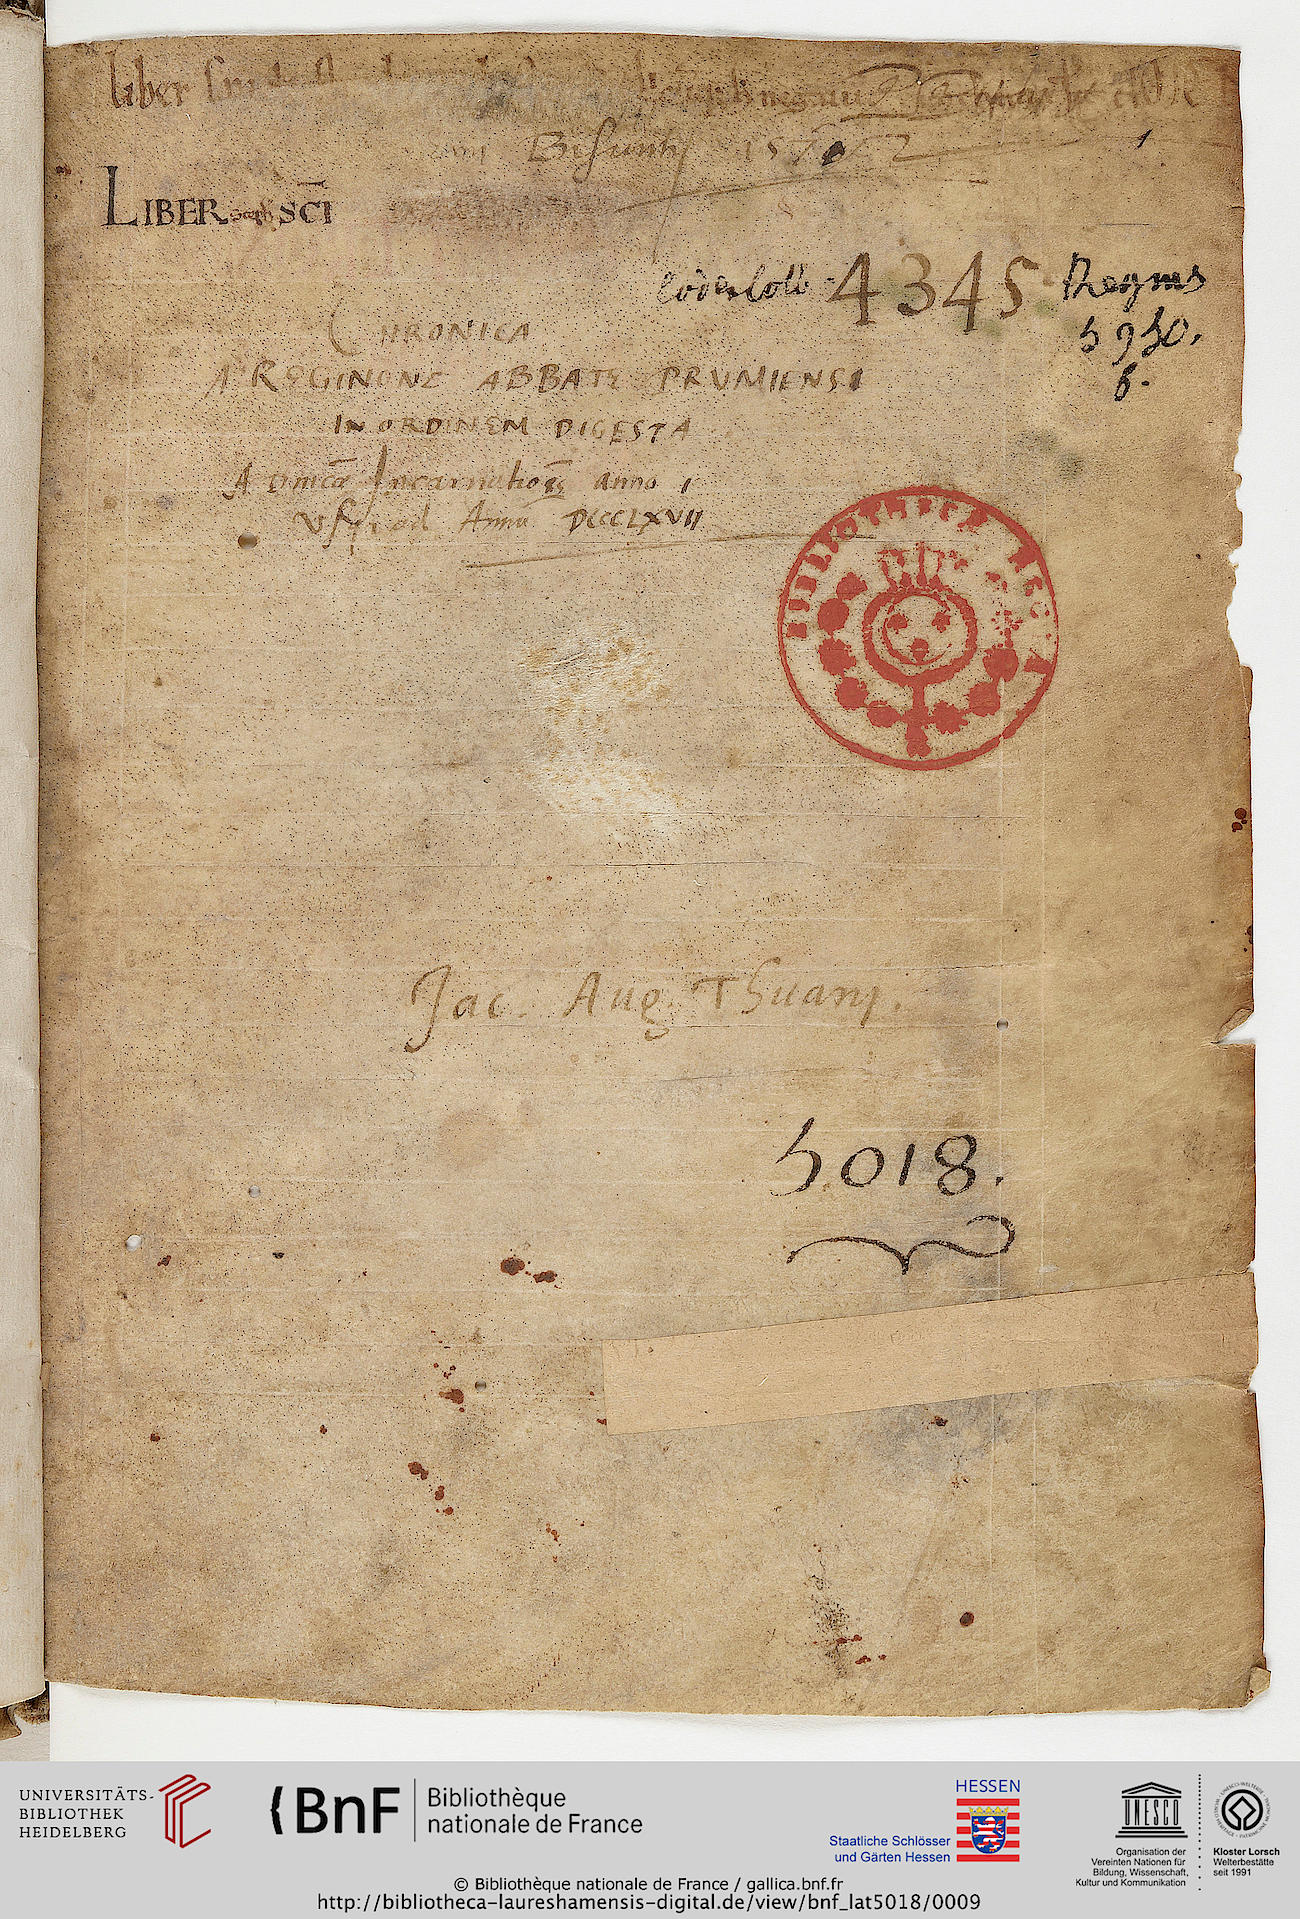 liber
Bisunti 157
1
LIBER SCĪ
Codex Colb 4345 Regius
5950.
6.
CHRONICA
A REGINONE ABBATE PRUMIENSI
IN ORDINEM DIGESTA
A Dnicæ Incarnationis anno 1
Usq; ad Annū DCCCCLXVII
BIBLIOTHECA REGIA
Jac. Aug. Thuani.
5018.
UNIVERSITÄTS-
BIBLIOTHEK
HEIDELBERG
BnF
Bibliothèque
nationale de France
HESSEN
Staatliche Schlösser
und Gärten Hessen
UNESCO
Organisation der
Vereinten Nationen für
Bildung, Wissenschaft,
Kultur und Kommunikation
Kloster Lorsch
Welterbestätte
seit 1991
© Bibliothèque nationale de France / gallica.bnf.fr
http://bibliotheca-laureshamensis-digital.de/view/bnf_lat5018/0009